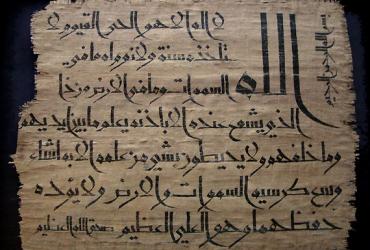 بسم الله الرحمن الرحيم
الله
لا اله الا هو الحى القيوم لا
تاخذه سنة ولا نوم له ما فى
السموات وما فى الارض من ذا
الذى يشفع عنده الا باذنه يعلم ما بين ايديهم
وما خلفهم ولا يحيطون بشىء من علمه الا بما شاء
وسع كرسيه السموات والارض ولا يؤده
حفظهما وهو العلى العظيم صدق الله العظيم